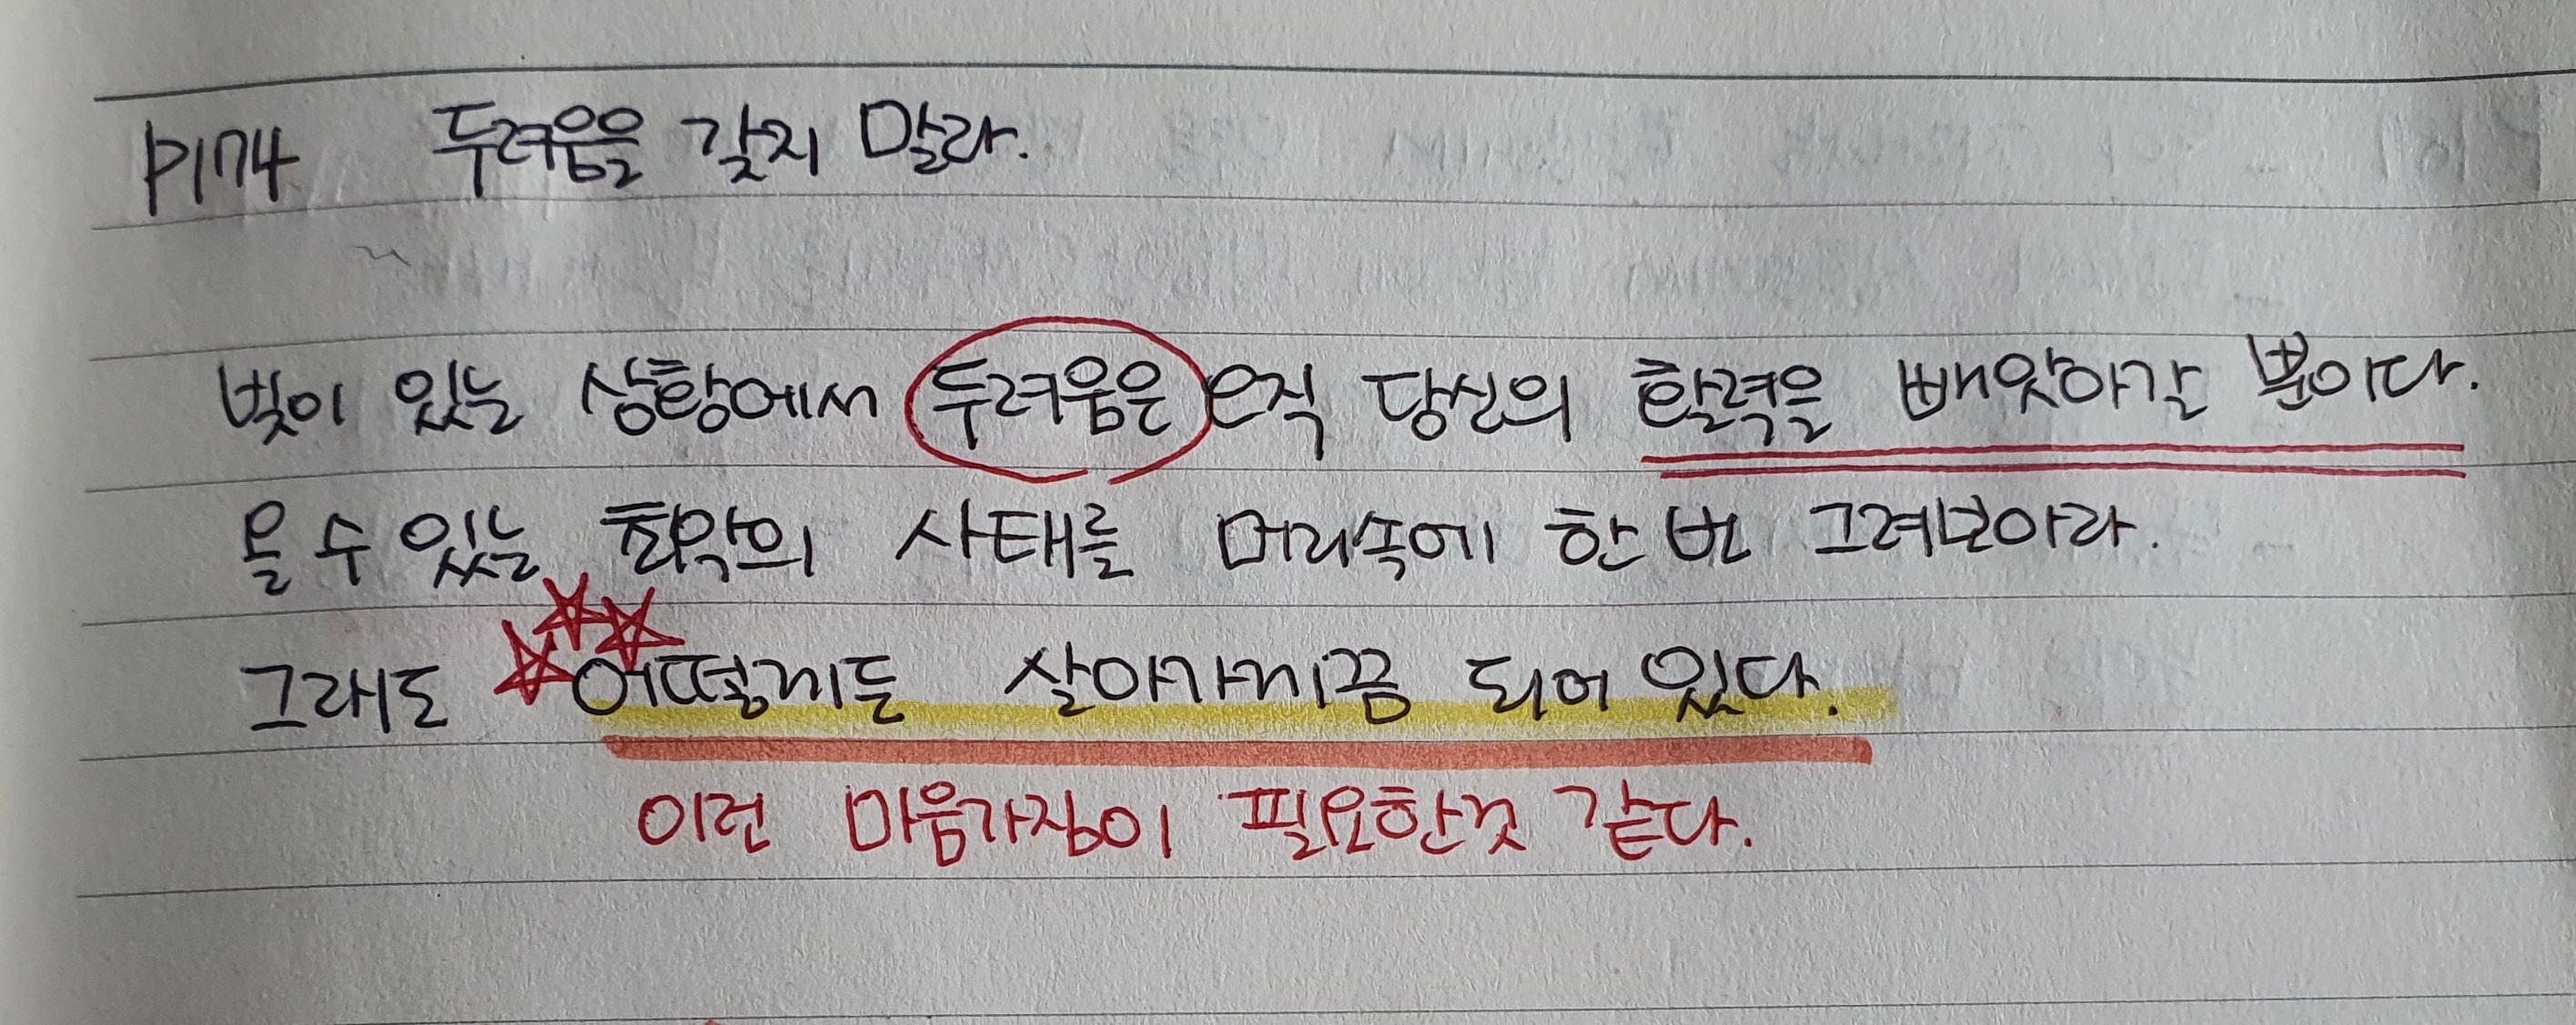 P174 두려움을 갖지 말라.
빚이 있는 상황에서 두려움은 오직 당신의 활력을 빼앗아갈 뿐이다.
올 수 있는 최악의 사태를 머리속에 한 번 그려보아라.
그래도 어떻게든 살아가게끔 되어 있다.
이런 마음가짐이 필요한것 같다.